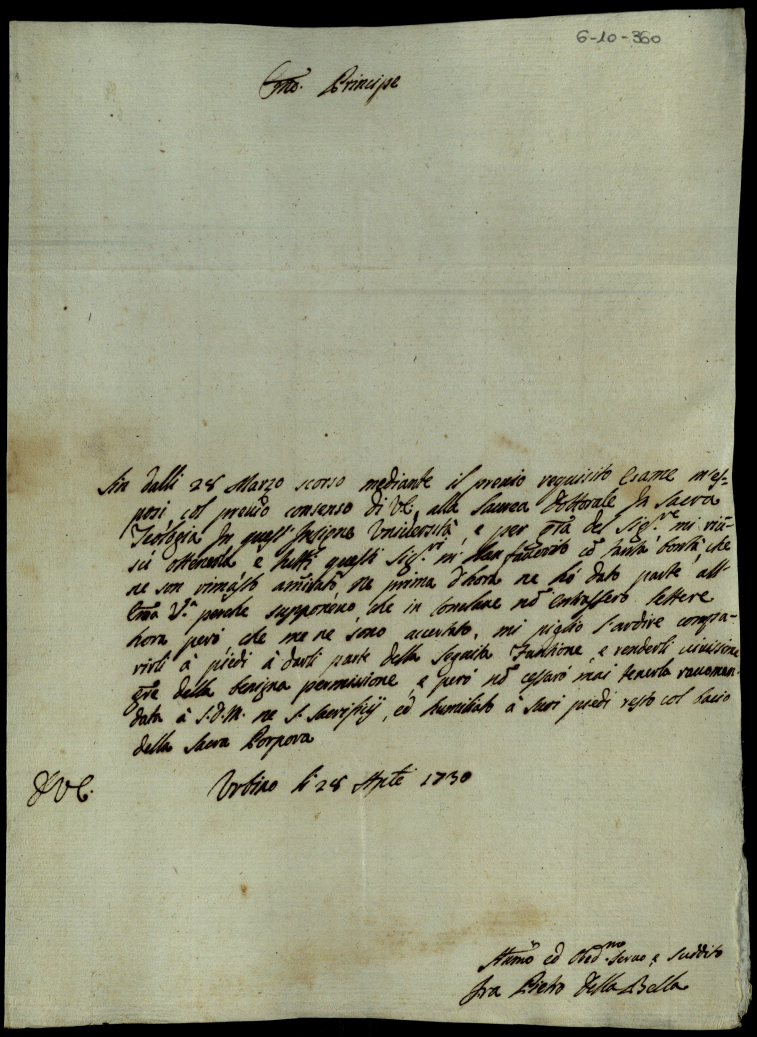 6-10-360
Emo. Principe
Sin dalli 28 Marzo scorso mediante il previo requisito Esame m'es-
posi col previo consenso di VE, alla Laurea Dottorale In Sacra
Teologia In quest'Insigne Università, e per gra del Sig.re mi riu-
scì ottenerla, e tutti questi Sig.ri mi han favorito co tanta bontà, che
ne son rimasto amirato, Ne prima d'hora ne hò dato parte all'
Ema V.a perche supponevo, che in Conclave no entrassero lettere
hora però che me ne sono accertato, mi piglio l'ardire compa-
rirli à piedi à darli parte della seguita Funzione, e renderli
gre della benigna permissione, e però no cessarò mai tenerla raccoman-
data à S.D.M. ne S. Sacrifizij, ed humiliato à suoi piedi resto col bacio
della Sacra Porpora
D VE.
Urbino li 28 Aple 1730
Humo ed Obed.mo Servo, e Suddito
Fra Pietro Della Bella